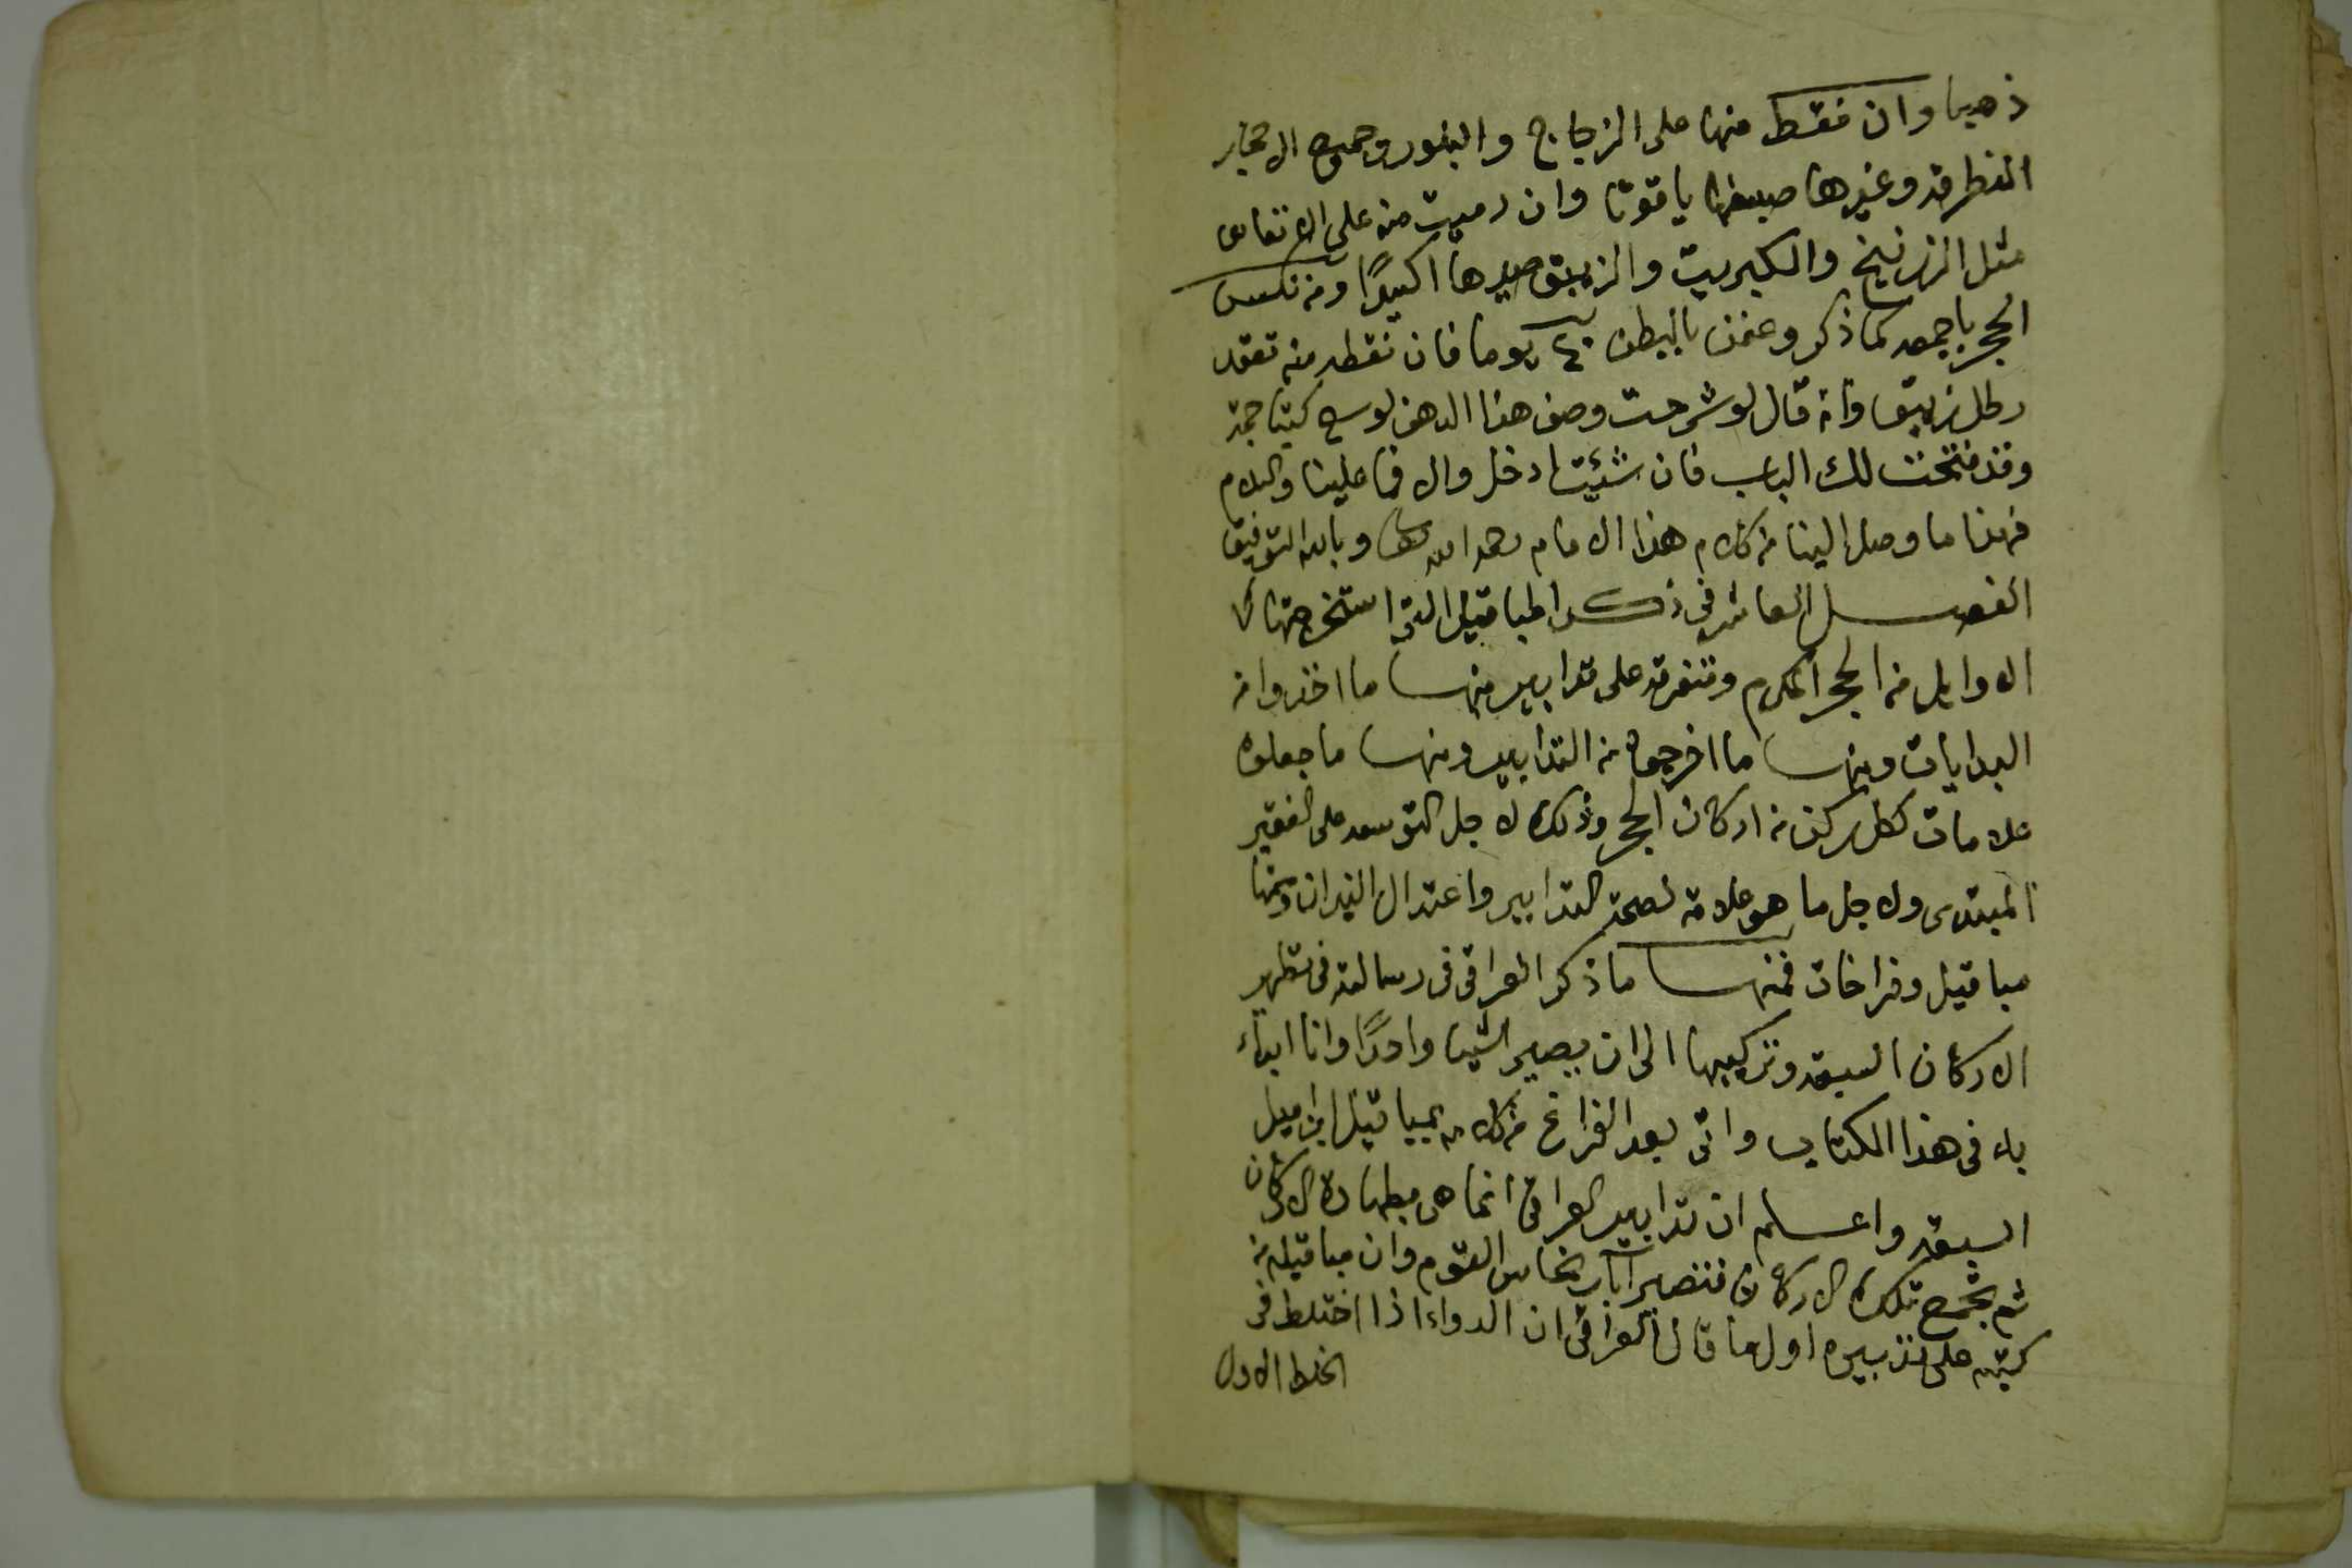 ذهبا وان نقط منها على الزجاج والبلور وجميع الاحجار
المطرقة وغيرها صبغها ياقوتا وان رميت منه على الارتفاس
مثل الزرنيخ والكبريت والزيبق صيرها اكسيرًا ومن نكس
الحجر باجمعه كما ذكر وعفن بالبطن ٤٠ يوما فان نقطه منه تعقد
رطل زيبق وانه قال لو شرحت وصف هذا الدهن لوسع كتبا جمة
وقد فتحت لك الباب فان شئيت ادخل والا فما علينا والسلام
فهذا ما وصل الينا من كلام هذا الامام رحمه الله تعالى وبالله التوفيق
الفصل العاشر في ذكر المباقيل التى استخرجتها
الاوايل من الحجر المكرم ومتفرقه على تدابير منها ما اخذوا من
البدايات ومنها ما اخرجوه من التدابير ومنها ما جعلوه
علامات لكل ركن من اركان الحجر وذلك لاجل التوسعه على الفقير
المبتدى ولاجل ما هو علامة لصحة التدابير واعتدال النيران ومنها
مباقيل وفراخات فمنها ما ذكر العراقى فى رسالته فى تطهير
الاركان السبعه وتركيبها الى ان يصير الشيا واحدًا وانا ابداء
به فى هذا الكتاب واتى بعد الفراغ من كلامه بمباقيل ابن اميل
السبعه واعلم ان تدابير العراقى انما هى بطهارة الاركان
ثم تجمع تلك الاركان فتصير آبار نحاس القوم وان مباقيله من
كيته على تدبيره اولها قال العراقى ان الدواء اذا اختلط فى
الخلط الاول